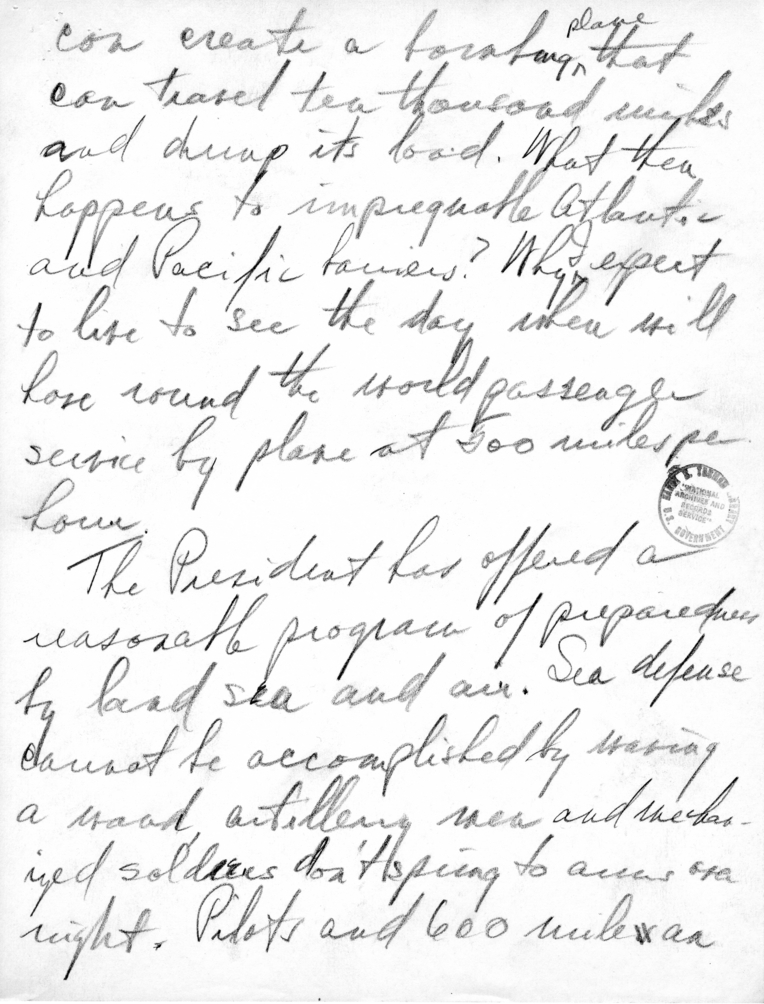 can create a bombing^ plane that
can travel ten thousand miles
and dump its load. What then
happens to impregnable Atlantic
and Pacific barriers? Why^ I expect
to live to see the day when will
have round the world passenger
service by plane at 500 miles per
hour.
HARRY S. TRUMAN LIBRARY
"NATIONAL
ARCHIVES AND
RECORDS
SERVICE"
U.S. GOVERNMENT
The President has offered a
reasonable program of preparedness
by land sea and air. Sea defense
cannot be accomplished by waving
a wand, artillery men and mechan-
ized soldiers don't spring to arms over
night. Pilots and 600 mile an